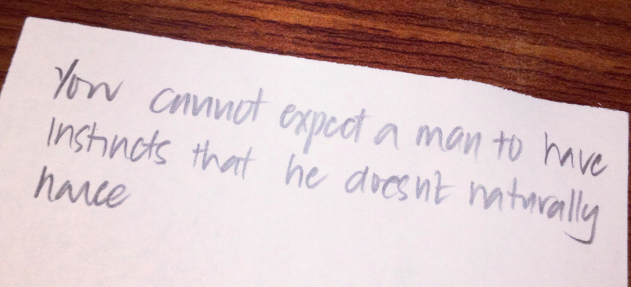 You cannot expect a man to have
instincts that he doesn't naturally
have